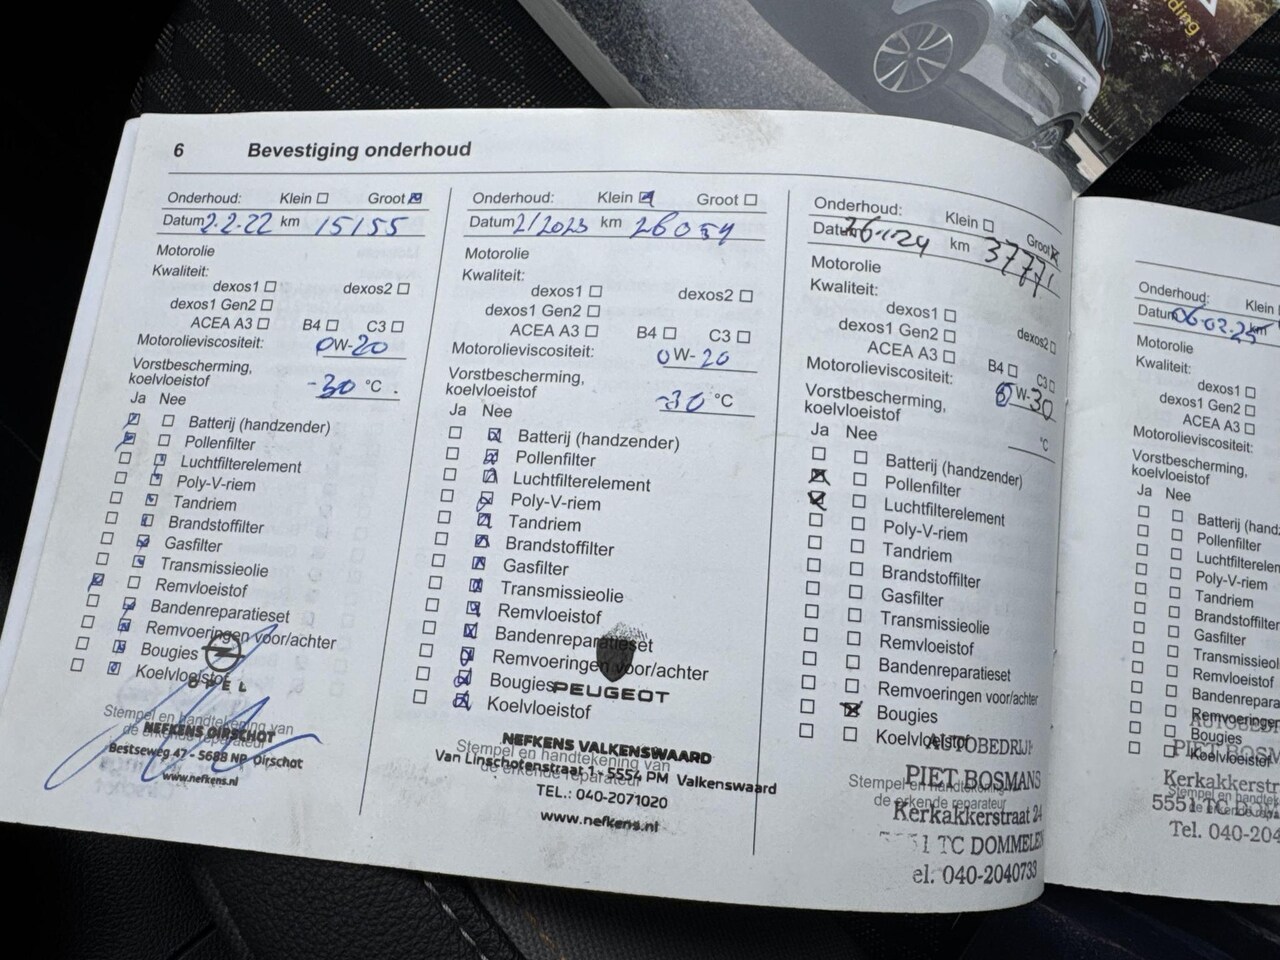 ding
6 Bevestiging onderhoud
Onderhoud: Klein Groot
Datum 2.2.22 km 15155
Motorolie
Kwaliteit:
dexos1 dexos2
dexos1 Gen2
ACEA A3 B4 C3
Motorolieviscositeit: 0W-20
Vorstbescherming,
koelvloeistof -30 °C
Ja Nee
Batterij (handzender)
Pollenfilter
Luchtfilterelement
Poly-V-riem
Tandriem
Brandstoffilter
Gasfilter
Transmissieolie
Remvloeistof
Bandenreparatieset
Remvoeringen voor/achter
Bougies
Koelvloeistof
OPEL
Stempel en handtekening van
de erkende reparateur
NEFKENS OIRSCHOT
Bestseweg 47 - 5688 NP Oirschot
www.nefkens.nl
Onderhoud: Klein Groot
Datum 2/2023 km 26054
Motorolie
Kwaliteit:
dexos1 dexos2
dexos1 Gen2
ACEA A3 B4 C3
Motorolieviscositeit: 0W-20
Vorstbescherming,
koelvloeistof -30 °C
Ja Nee
Batterij (handzender)
Pollenfilter
Luchtfilterelement
Poly-V-riem
Tandriem
Brandstoffilter
Gasfilter
Transmissieolie
Remvloeistof
Bandenreparatieset
Remvoeringen voor/achter
Bougies
Koelvloeistof
PEUGEOT
NEFKENS VALKENSWAARD
Stempel en handtekening van
de erkende reparateur
Van Linschotenstraat 1 - 5554 PM Valkenswaard
TEL.: 040-2071020
www.nefkens.nl
Onderhoud: Klein Groot
Datum 26-1-24 km 37771
Motorolie
Kwaliteit:
dexos1
dexos2
dexos1 Gen2
ACEA A3 B4 C3
Motorolieviscositeit: 0W-30
Vorstbescherming,
koelvloeistof °C
Ja Nee
Batterij (handzender)
Pollenfilter
Luchtfilterelement
Poly-V-riem
Tandriem
Brandstoffilter
Gasfilter
Transmissieolie
Remvloeistof
Bandenreparatieset
Remvoeringen voor/achter
Bougies
Koelvloeistof
AUTOBEDRIJF
PIET BOSMANS
Stempel en handtekening
de erkende reparateur
Kerkakkerstraat 24
51 TC DOMMELEN
el. 040-2040733
Onderhoud: Klein
Datum 06-02-25 km
Motorolie
Kwaliteit:
dexos1
dexos1 Gen2
ACEA A3
Motorolieviscositeit:
Vorstbescherming,
koelvloeistof
Ja Nee
Batterij (hand
Pollenfilter
Luchtfilterelem
Poly-V-riem
Tandriem
Brandstoffilter
Gasfilter
Transmissieol
Remvloeistof
Bandenrepara
Remvoeringen
Bougies
Koelvloeistof
AUTOBEDRI
PIET BOSM
Kerkakkerstr
Stempel en handtek
5551 TC DOM
Tel. 040-204